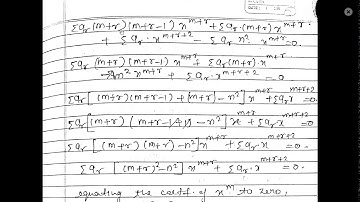 Σar (m+r)(m+r-1) x^m+r + Σar·(m+r) x^m+r
+ Σar·x^m+r+2 - Σar n² x^m+r = 0.
Σar (m+r)(m+r-1) x^m+r + Σar(m+r)·x^m+r
- Σar n² x^m+r + Σar·x^m+r+2 = 0
Σar [(m+r)(m+r-1) + (m+r) - n²] x^m+r + Σar x^m+r+2 = 0.
Σar [(m+r) (m+r-1+1) - n²] x^m+r + Σar x^m+r+2 = 0.
Σar [(m+r)(m+r) - n²] x^m+r + Σar x^m+r+2 = 0.
Σar [(m+r)² - n²] x^m+r + Σar x^m+r+2 = 0.
equating the coeff. of x^m to zero,